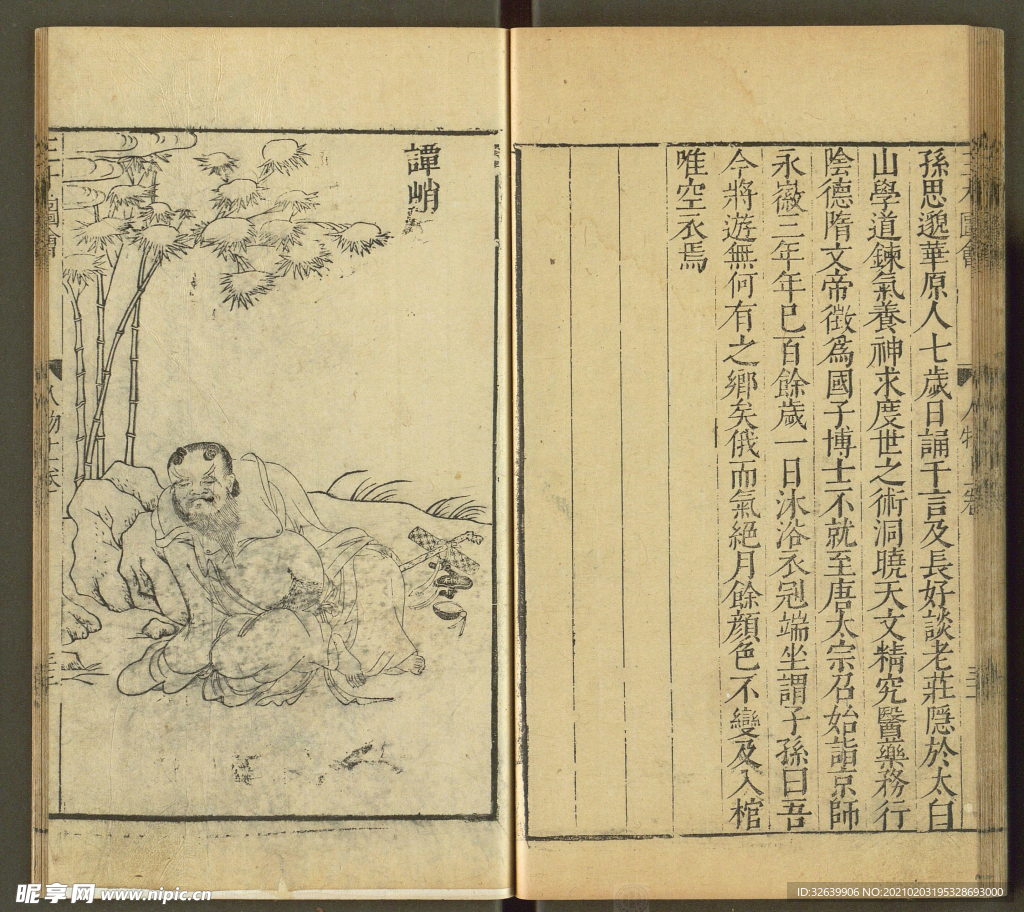 孫思邈華原人七歲日誦千言及長好談老莊隱於太白
山學道鍊氣養神求度世之術洞曉天文精究醫藥務行
陰德隋文帝徵爲國子博士不就至唐太宗召始詣京師
永徽三年年已百餘歲一日沐浴衣冠端坐謂子孫曰吾
今將遊無何有之鄉矣俄而氣絕月餘顏色不變及入棺
唯空衣焉
譚峭
昵享网 www.nipic.cn
ID:32639906 NO:20210203195328693000